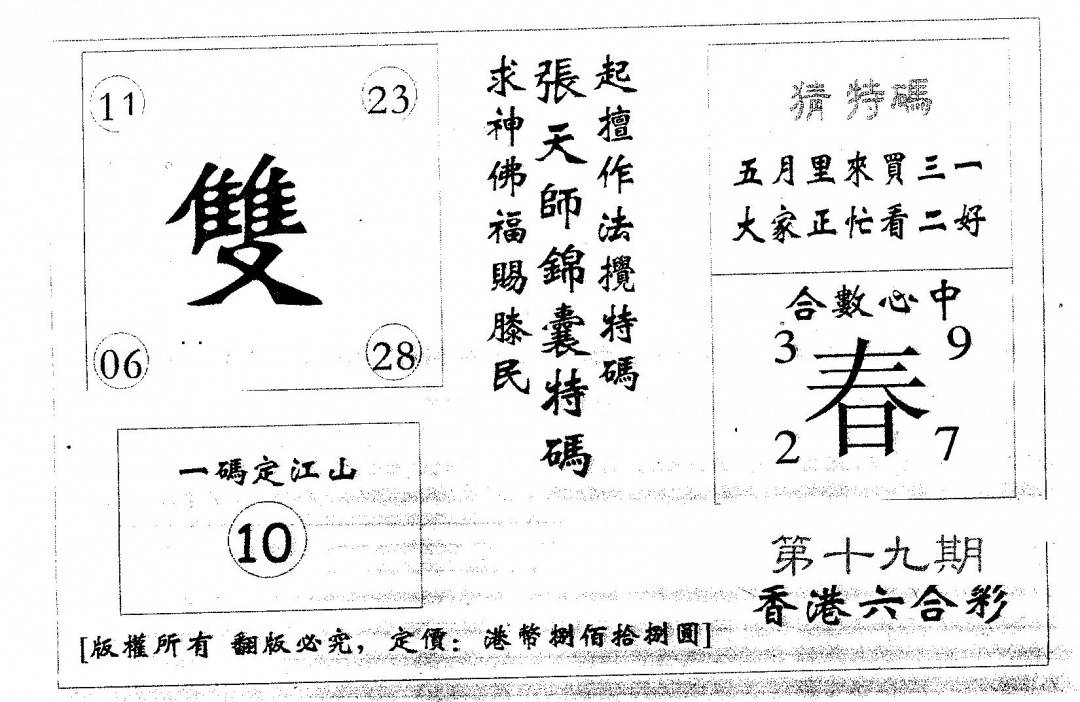 11
23
雙
06
28
一碼定江山
10
起擅作法攪特碼
張天師錦囊特碼
求神佛福賜滕民
猜特碼
五月里來買三一
大家正忙看二好
合數必中
3
9
春
2
7
第十九期
香港六合彩
[版權所有 翻版必究，定價：港幣捌佰拾捌圓]